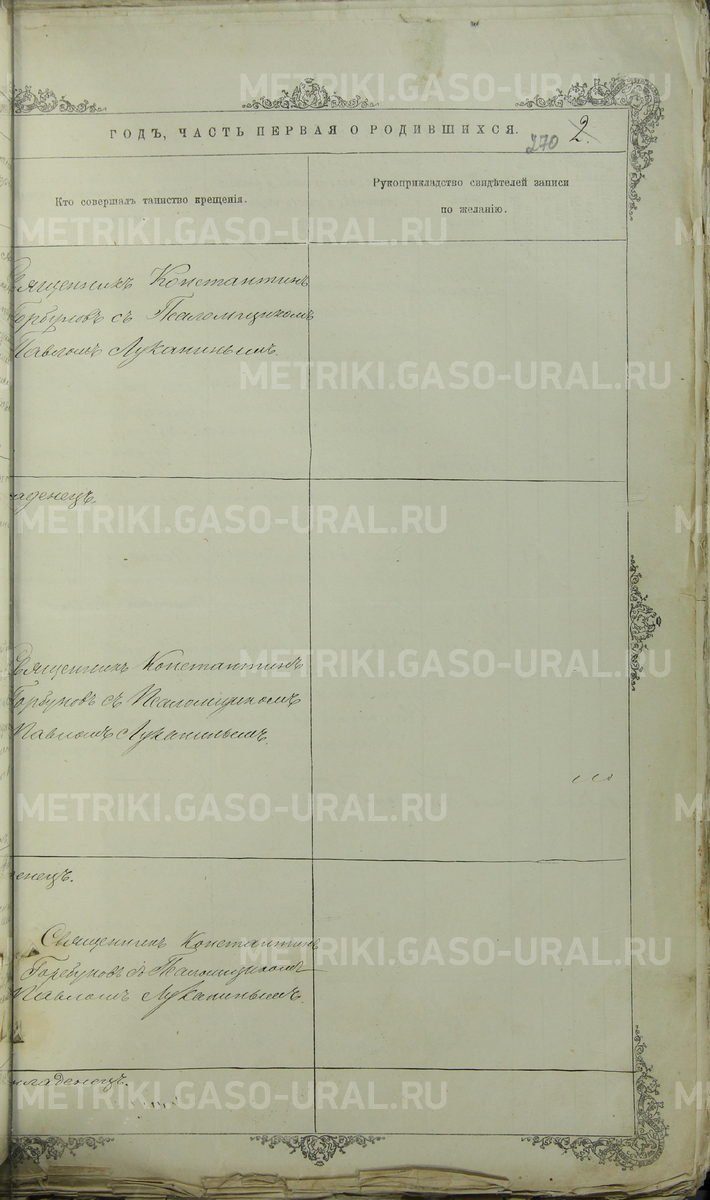 METRIKI.GASO-URAL.RU
ГОДЪ, ЧАСТЬ ПЕРВАЯ О РОДИВШИХСЯ.
270 2.
Кто совершалъ таинство крещенія.
Рукоприкладство свидѣтелей записи
по желанію.
METRIKI.GASO-URAL.RU
Священникъ Константинъ
Горбуновъ съ Псаломщикомъ
Павломъ Луканинымъ.
METRIKI.GASO-URAL.RU
младенецъ.
METRIKI.GASO-URAL.RU
Священникъ Константинъ
METRIKI.GASO-URAL.RU
Горбуновъ съ Псаломщикомъ
Павломъ Луканинымъ.
METRIKI.GASO-URAL.RU
денецъ.
Священникъ Константинъ
METRIKI.GASO-URAL.RU
Горбуновъ съ Псаломщикомъ
Павломъ Луканинымъ.
младенецъ.
METRIKI.GASO-URAL.RU